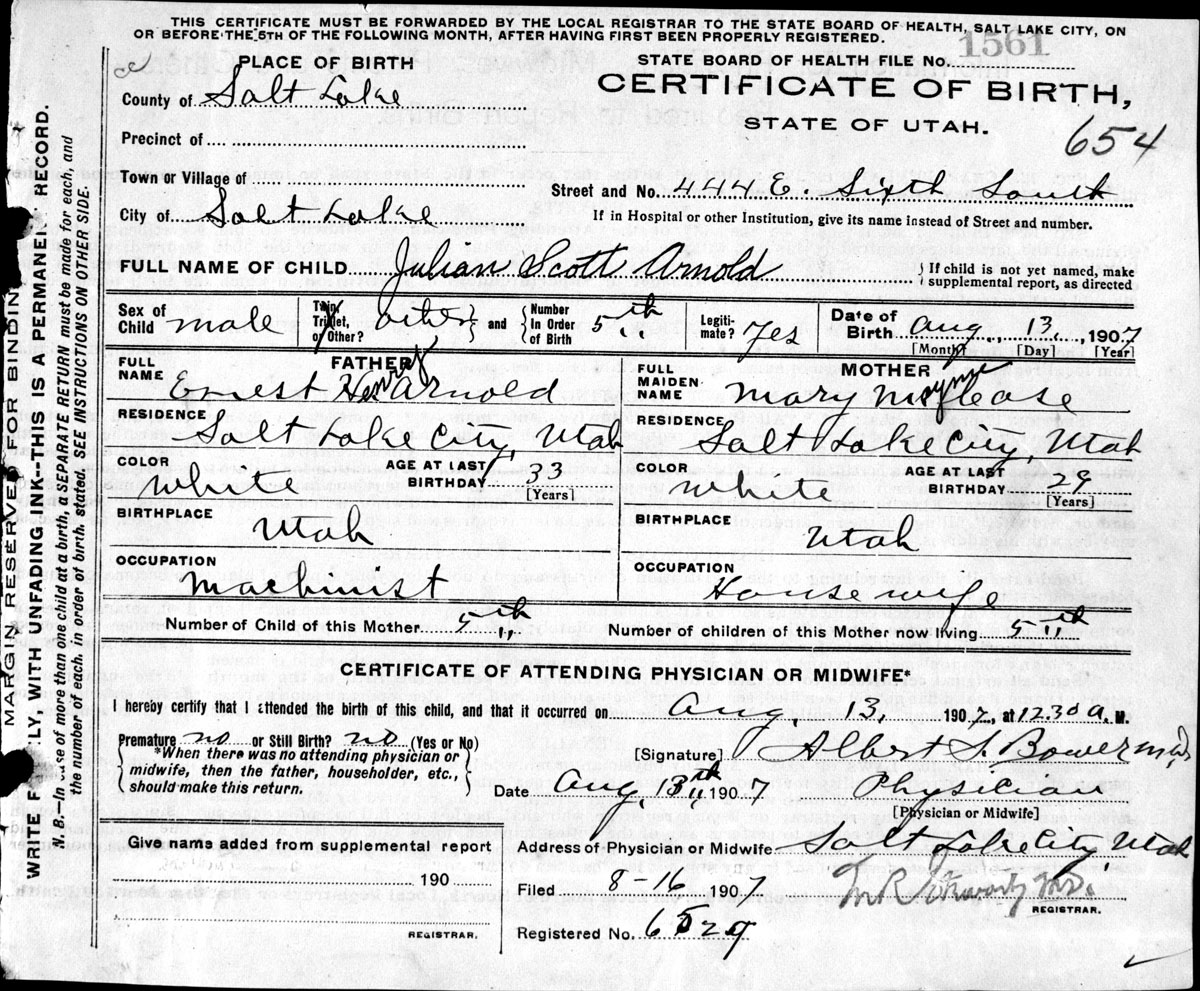 THIS CERTIFICATE MUST BE FORWARDED BY THE LOCAL REGISTRAR TO THE STATE BOARD OF HEALTH, SALT LAKE CITY, ON
OR BEFORE THE 5TH OF THE FOLLOWING MONTH, AFTER HAVING FIRST BEEN PROPERLY REGISTERED.
1561
PLACE OF BIRTH
STATE BOARD OF HEALTH FILE No.
County of Salt Lake
CERTIFICATE OF BIRTH,
STATE OF UTAH.
654
Precinct of
Town or Village of
Street and No. 444 E. Sixth South
City of Salt Lake
If in Hospital or other Institution, give its name instead of Street and number.
FULL NAME OF CHILD Julian Scott Arnold
If child is not yet named, make supplemental report, as directed
Sex of Child male
Twin, Triplet, or Other? other and Number In Order of Birth 5th
Legitimate? Yes
Date of Birth Aug, 13, 1907
[Month] [Day] [Year]
FATHER
FULL NAME Ernest Henry Arnold
MOTHER
FULL MAIDEN NAME Mary
RESIDENCE Salt Lake City, Utah
RESIDENCE Salt Lake City, Utah
COLOR White AGE AT LAST BIRTHDAY 33 [Years]
COLOR White AGE AT LAST BIRTHDAY 29 [Years]
BIRTHPLACE Utah
BIRTHPLACE Utah
OCCUPATION Machinist
OCCUPATION Housewife
Number of Child of this Mother 5th
Number of children of this Mother now living 5th
CERTIFICATE OF ATTENDING PHYSICIAN OR MIDWIFE*
I hereby certify that I attended the birth of this child, and that it occurred on Aug, 13, 1907, at 12.30 A. M.
Premature no or Still Birth? no (Yes or No)
*When there was no attending physician or midwife, then the father, householder, etc., should make this return.
[Signature] Albert S. Bower M.D.
Date Aug, 13th 1907 Physician
[Physician or Midwife]
Give names added from supplemental report
Address of Physician or Midwife Salt Lake City, Utah
190
Filed 8-16 1907
REGISTRAR.
REGISTRAR.
Registered No. 6529
MARGIN RESERVED FOR BINDIN
WRITE LY, WITH UNFADING INK--THIS IS A PERMANEN RECORD.
N. B.--In se of more than one child at a birth, a SEPARATE RETURN must be made for each, and
the number of each, in order of birth, stated. SEE INSTRUCTIONS ON OTHER SIDE.